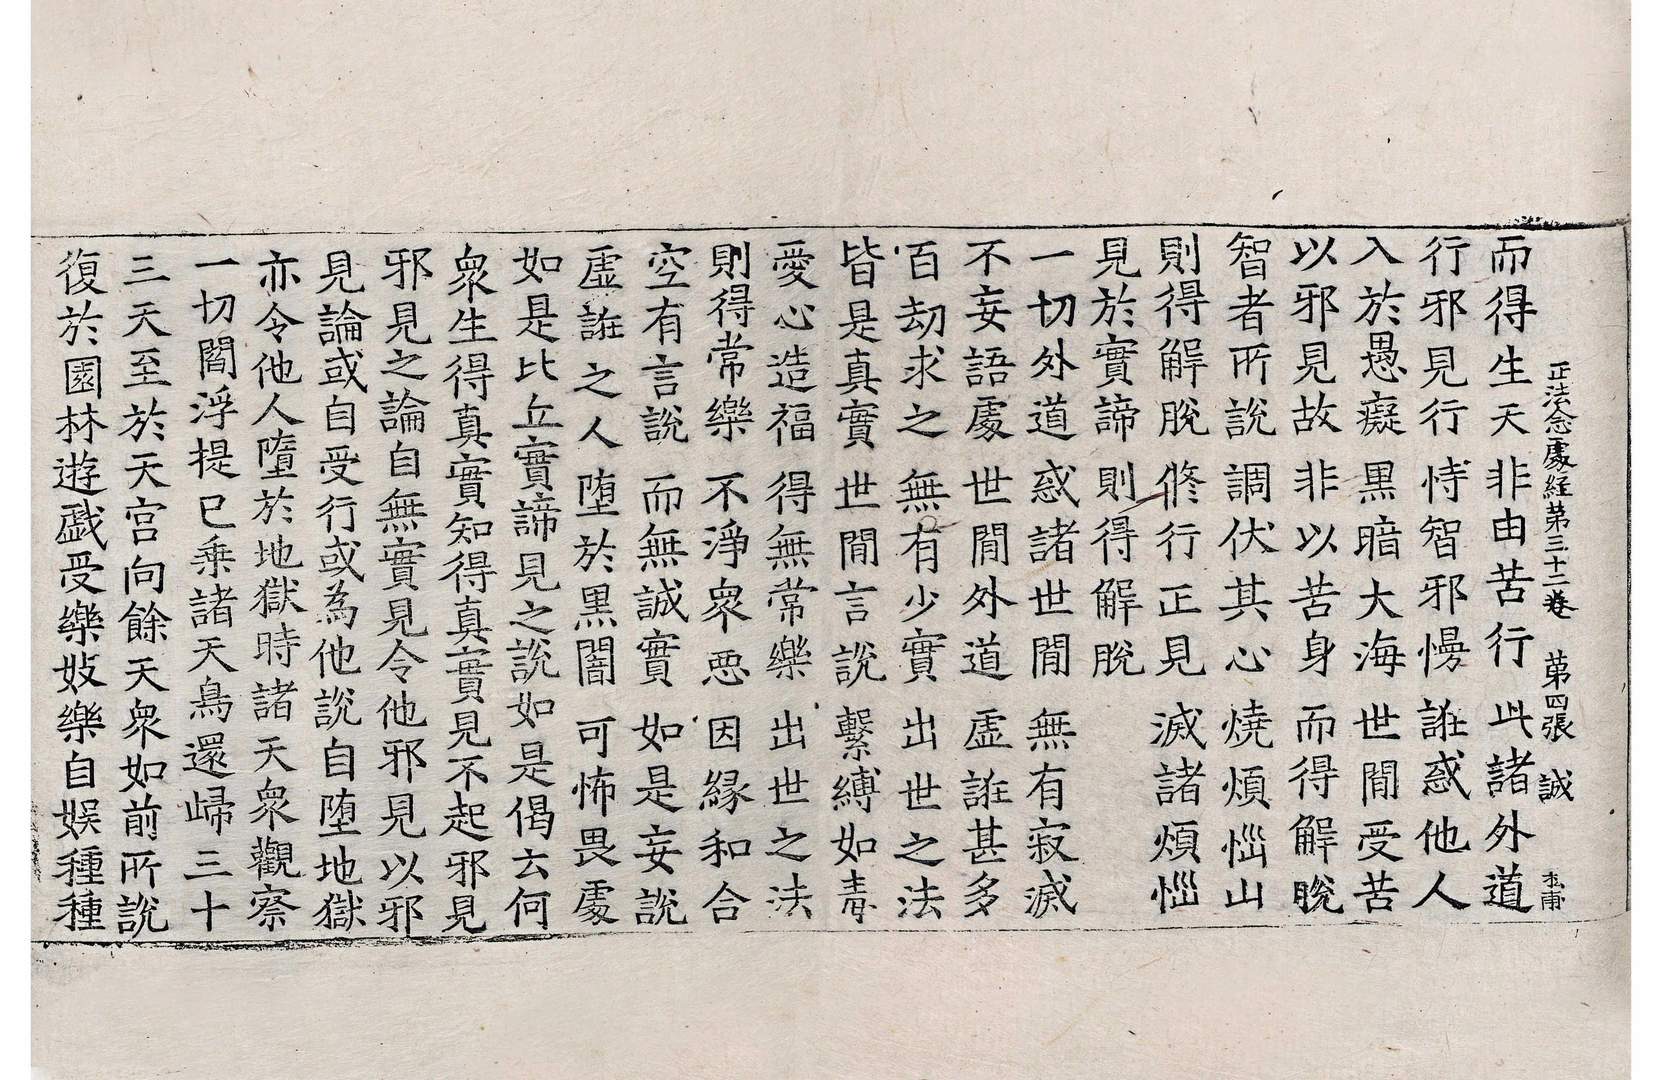 正法念處經第三十二卷 第四張 誠
而得生天 非由苦行 此諸外道
行邪見行 恃智邪慢 誑惑他人
入於愚癡 黑暗大海 世間受苦
以邪見故 非以苦身 而得解脫
智者所說 調伏其心 燒煩惱山
則得解脫 修行正見 滅諸煩惱
見於實諦 則得解脫
一切外道 惑諸世間 無有寂滅
不妄語處 世間外道 虛誑甚多
百劫求之 無有少實 出世之法
皆是真實 世間言說 繫縛如毒
愛心造福 得無常樂 出世之法
則得常樂 不淨衆惡 因緣和合
空有言說 而無誠實 如是妄說
虛誑之人 墮於黑闇 可怖畏處
如是比丘實諦見之說如是偈云何
衆生得真實知得真實見不起邪見
邪見之論自無實見令他邪見以邪
見論或自受行或為他說自墮地獄
亦令他人墮於地獄時諸天衆觀察
一切閻浮提已乘諸天鳥還歸三十
三天至於天宮向餘天衆如前所說
復於園林遊戲受樂妓樂自娛種種